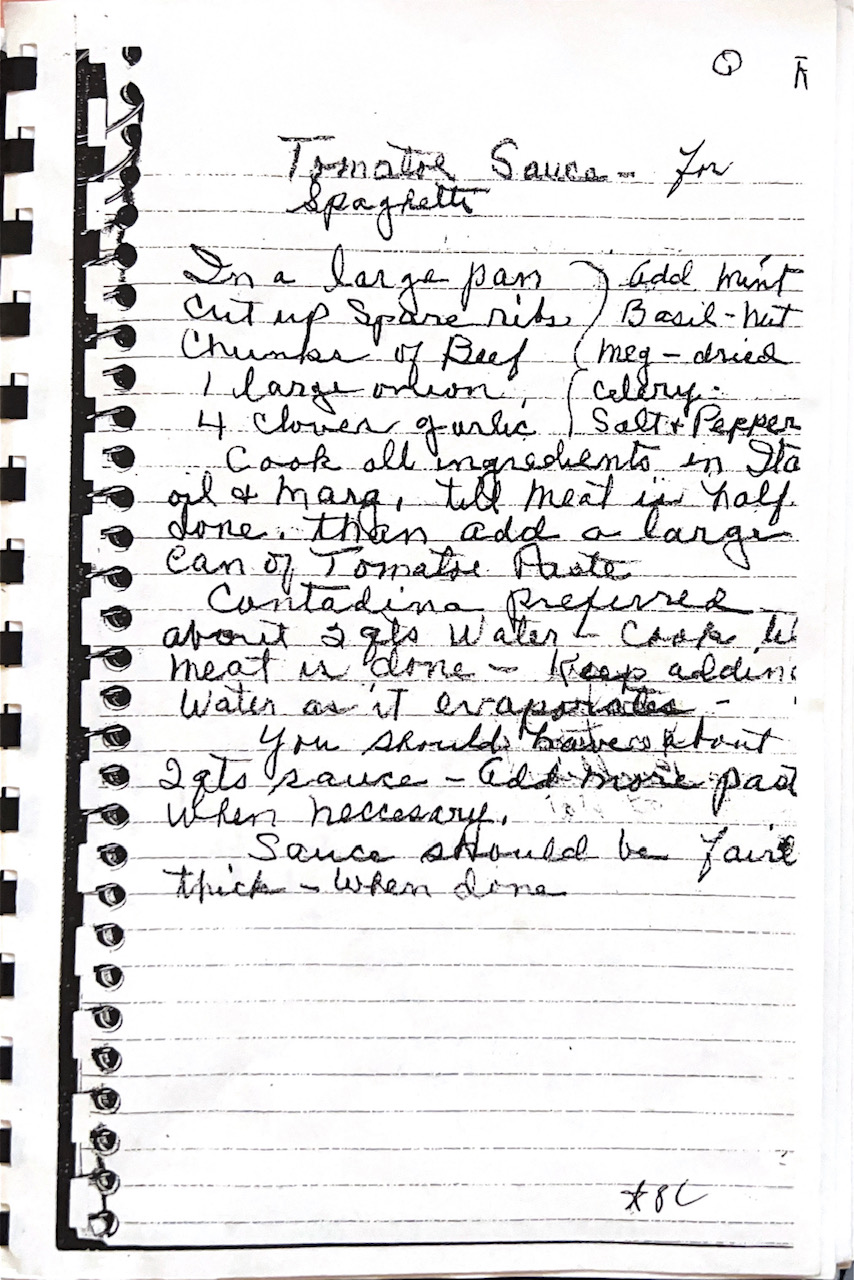 Tomatoe Sauce - for
Spaghetti
In a large pan
cut up Spare ribs
Chunks of Beef
1 large onion,
4 cloves garlic
add mint
Basil - nut
meg - dried
celery.
Salt & Pepper
Cook all ingredients in Ita
oil & marg, till meat is half
done. than add a large
can of Tomatoe Paste
Contadina preferred
about 2 qts Water - Cook
meat is done - Keep adding
Water as it evaporates -
You should have about
2 qts sauce - add more past
when neccesary.
Sauce should be fairl
thick - When done